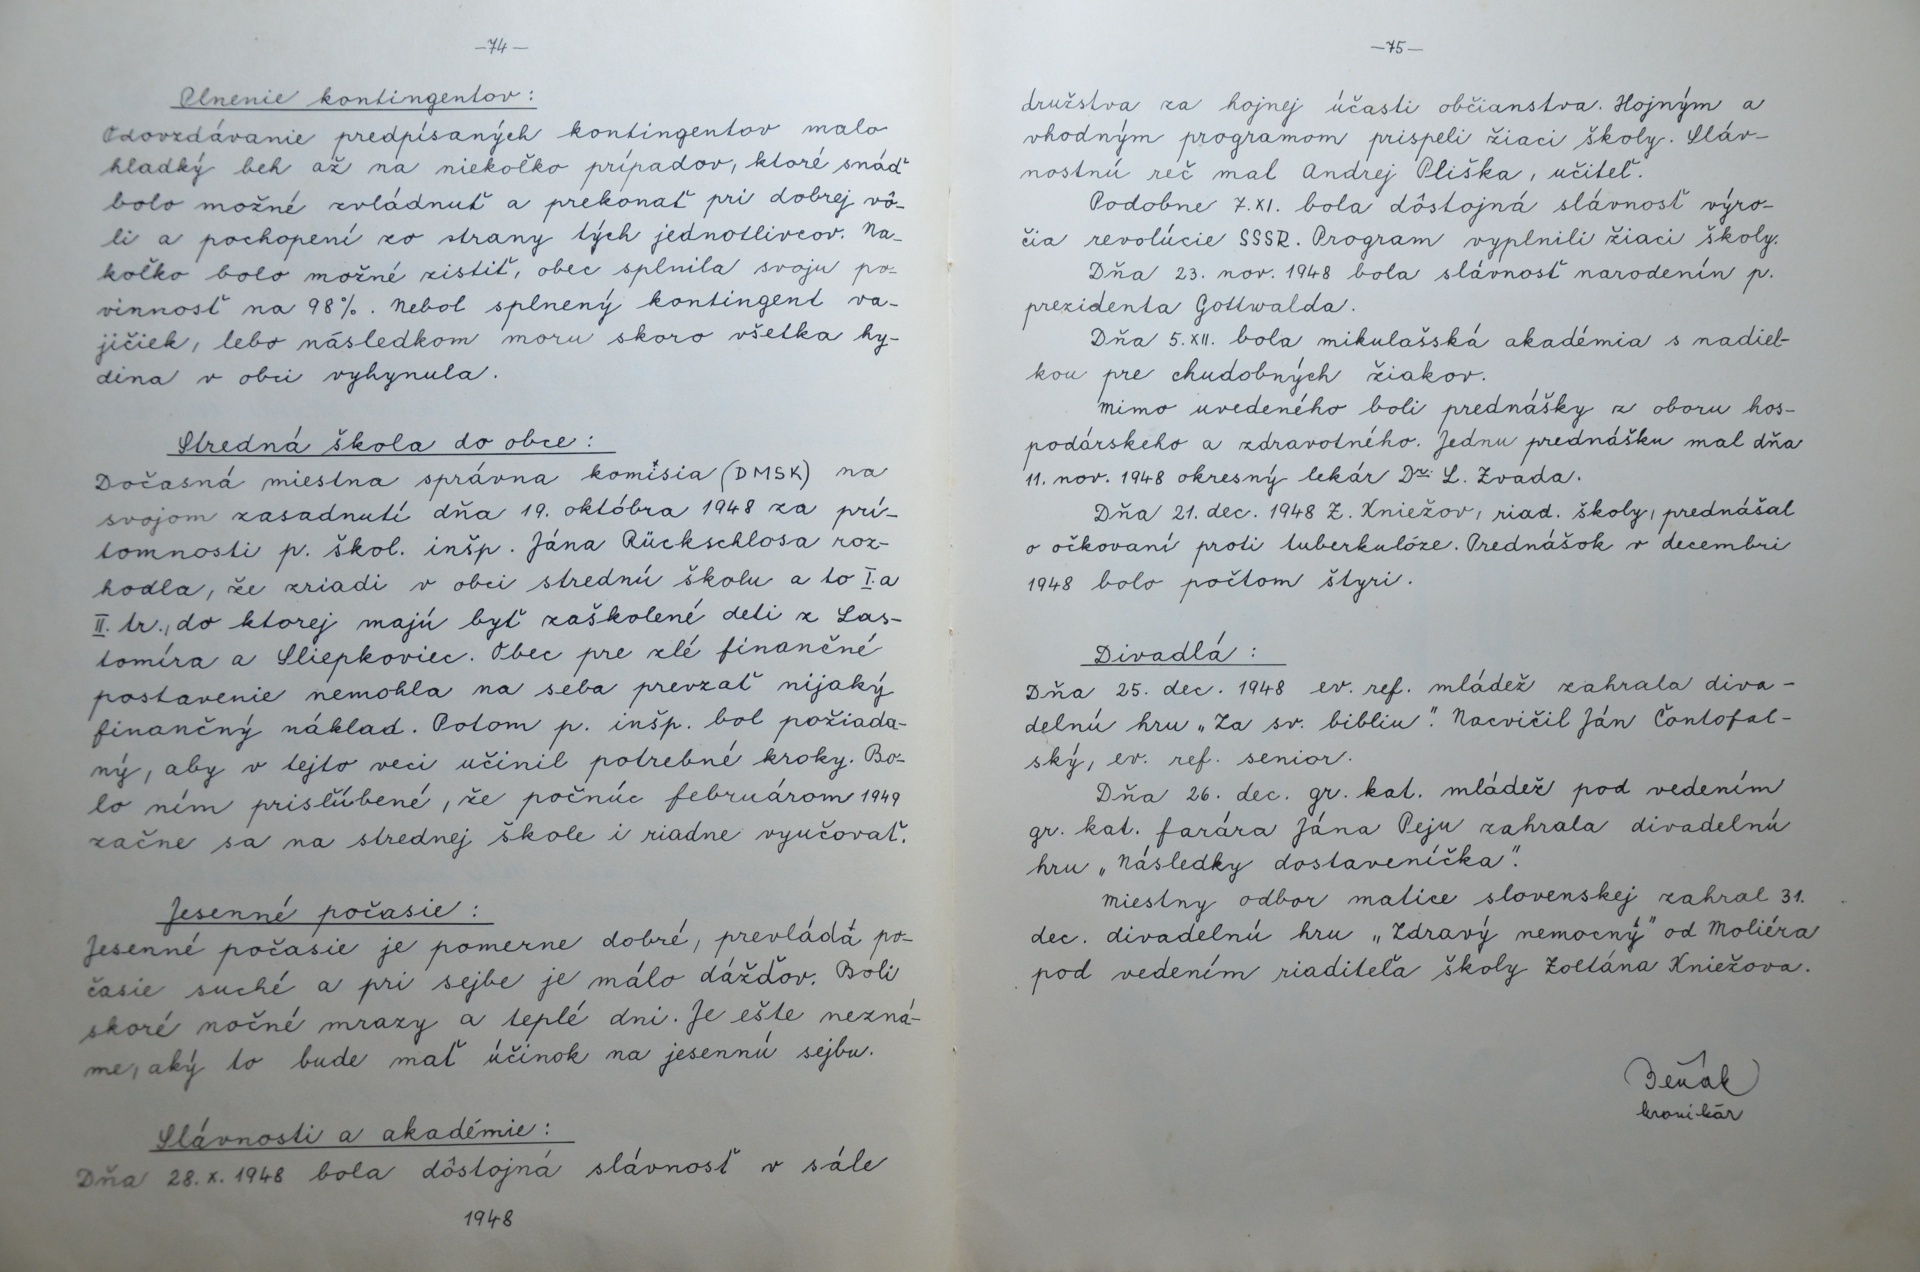 —74—
Plnenie kontingentov:
Odovzdávanie predpísaných kontingentov malo
hladký beh až na niekoľko prípadov, ktoré snáď
bolo možné zvládnuť a prekonať pri dobrej vô-
li a pochopení zo strany tých jednotlivcov. Na-
koľko bolo možné zistiť, obec splnila svoju po-
vinnosť na 98%. Nebol splnený kontingent va-
jíčiek, lebo následkom moru skoro všetka hy-
dina v obci vyhynula.
Stredná škola do obce:
Dočasná miestna správna komisia (DMSK) na
svojom zasadnutí dňa 19. októbra 1948 za prí-
tomnosti p. škol. inšp. Jána Rückschlosa roz-
hodla, že zriadi v obci strednú školu a to I. a
II. tr., do ktorej majú byť zaškolené deti z Las-
tomíra a Sliepkoviec. Obec pre zlé finančné
postavenie nemohla na seba prevzať nijaký
finančný náklad. Potom p. inšp. bol požiada-
ný, aby v tejto veci učinil potrebné kroky. Bo-
lo ním prisľúbené, že počnúc februárom 1949
začne sa na strednej škole i riadne vyučovať.
Jesenné počasie:
Jesenné počasie je pomerne dobré, prevládá po-
časie suché a pri sejbe je málo dážďov. Boli
skoré nočné mrazy a teplé dni. Je ešte nezná-
me, aký to bude mať účinok na jesennú sejbu.
Slávnosti a akadémie:
Dňa 28. X. 1948 bola dôstojná slávnosť v sále
1948
—75—
družstva za hojnej účasti občianstva. Hojným a
vhodným programom prispeli žiaci školy. Sláv-
nostnú reč mal Andrej Pliška, učiteľ.
Podobne 7. XI. bola dôstojná slávnosť výro-
čia revolúcie SSSR. Program vyplnili žiaci školy.
Dňa 23. nov. 1948 bola slávnosť narodenín p.
prezidenta Gottwalda.
Dňa 5. XII. bola mikulašská akadémia s nadiel-
kou pre chudobných žiakov.
Mimo uvedeného boli prednášky z oboru hos-
podárskeho a zdravotného. Jednu prednášku mal dňa
11. nov. 1948 okresný lekár Dr. L. Zvada.
Dňa 21. dec. 1948 Z. Kniežov, riad. školy, prednášal
o očkovaní proti tuberkulóze. Prednášok v decembri
1948 bolo počtom štyri.
Divadlá:
Dňa 25. dec. 1948 ev. ref. mládež zahrala diva-
delnú hru „Za sv. bibliu". Nacvičil Ján Čontofal-
ský, ev. ref. senior.
Dňa 26. dec. gr. kat. mládež pod vedením
gr. kat. farára Jána Peju zahrala divadelnú
hru „Následky dostaveníčka".
Miestny odbor matice slovenskej zahral 31.
dec. divadelnú hru „Zdravý nemocný" od Moliéra
pod vedením riaditeľa školy Zoltána Kniežova.
Deňák
kronikár